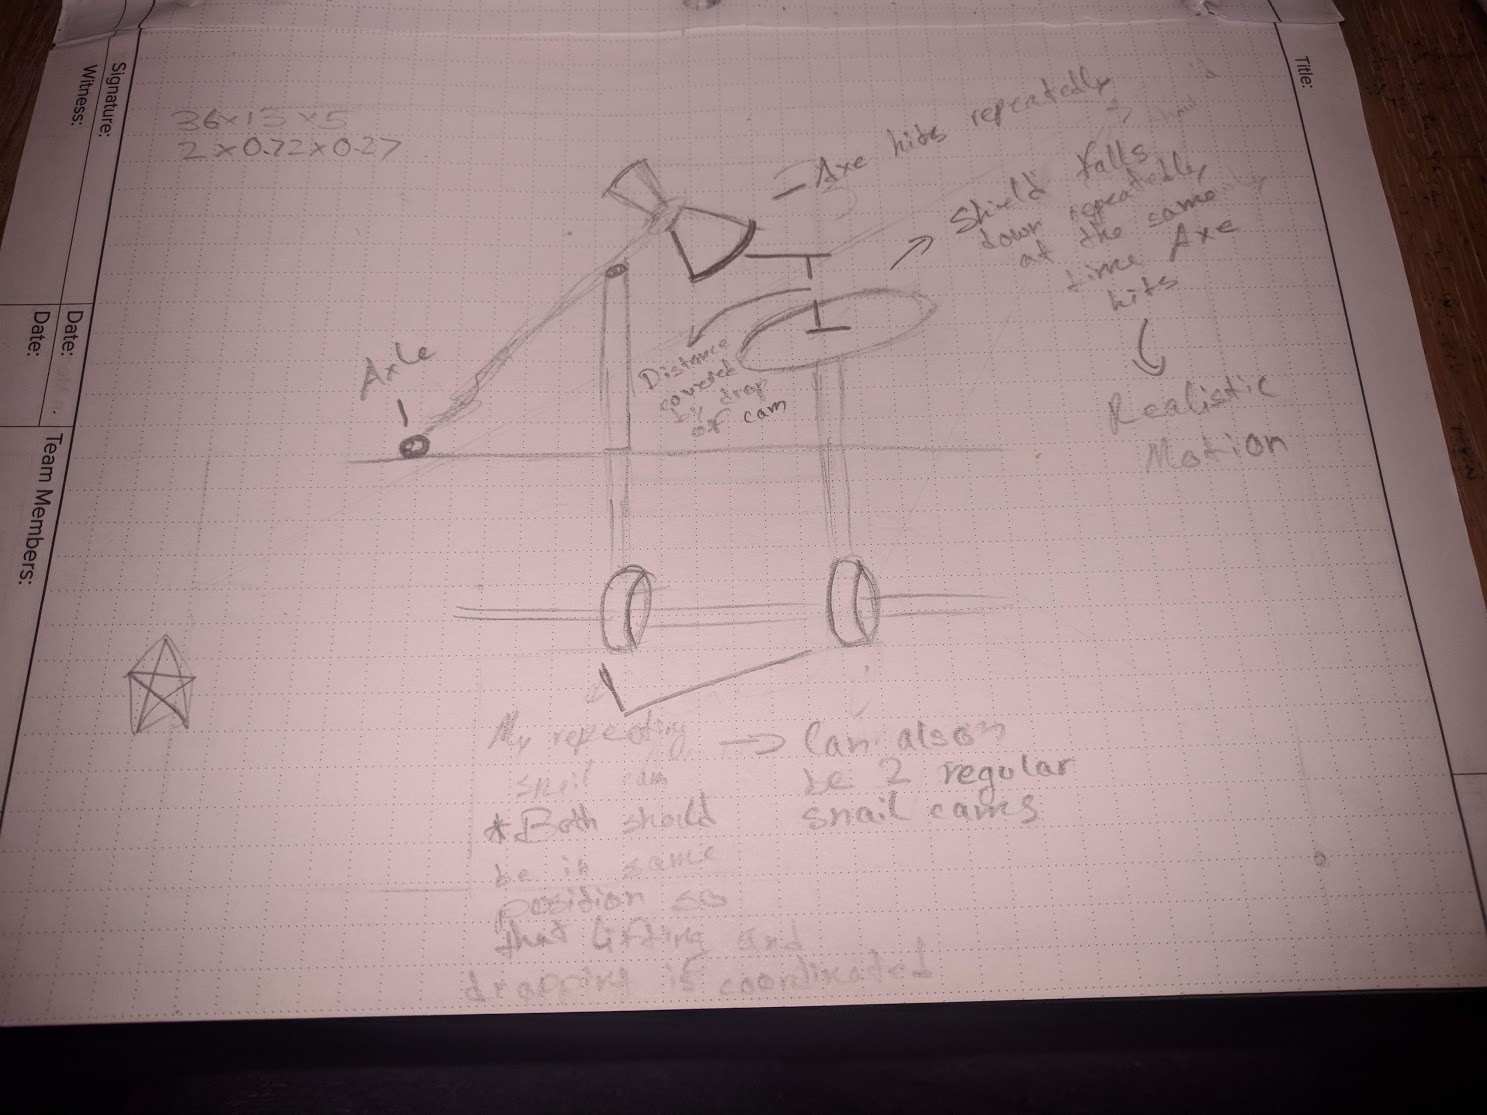 Title:
Signature:
Witness:
Date:
Date:
Team Members:
36x15x5
2x0.72x0.27
- Axe hits repeatedly
Shield falls
down repeatedly
at the same
time Axe
hits
Realistic
Motion
Axle
Distance
covered
by drop
of cam
My repeating
snail cam
* Both should
be in same
position so
that lifting and
dropping is coordinated
→ Can also
be 2 regular
snail cams